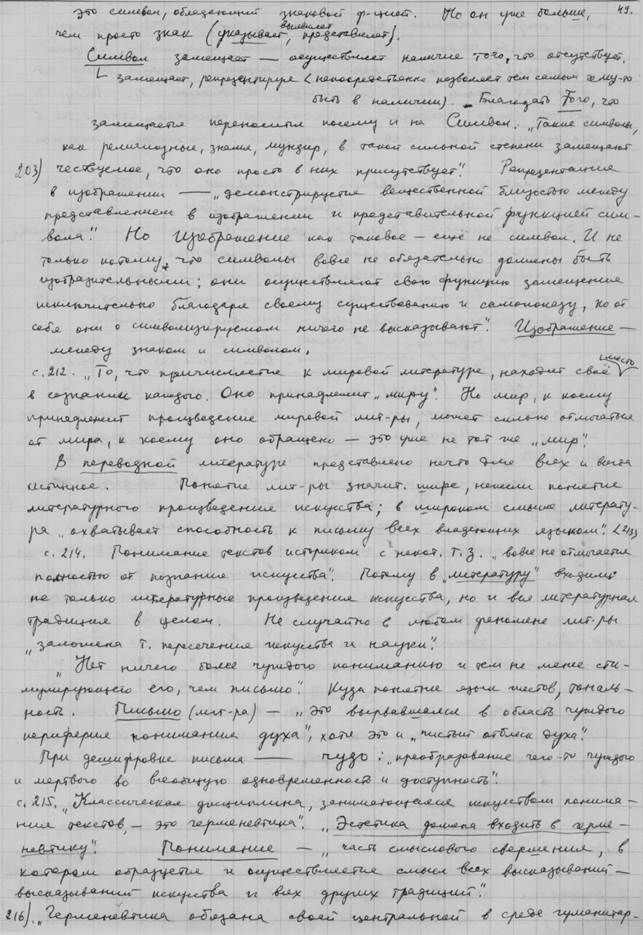 49.
это символ, обладающий знаковой ф-цией. Но он уже больше,
чем просто знак (указывает, представляет).
Символ замещает — осуществляет наличие того, что отсутствует.
замещает, репрезентируя (непосредственно позволяет тем самым чему-то
быть в наличии). Благодаря Того, что
замещается переносится посему и на Символ. „Такие символы,
как религиозные, знамя, мундир, в такой сильной степени замещают
203) чествуемое, что оно просто в них присутствует". Репрезентация
в изображении — „демонстрируется вещественной близостью между
представлением в изображении и представительной функцией сим-
вола". Но Изображение как таковое — ещё не символ. И не
только потому, что символы вовсе не обязательно должны быть
изобразительными; они осуществляют свою функцию замещения
исключительно благодаря своему существованию и самопоказу, но от
себя они о символизируемом ничего не высказывают". Изображение —
между знаком и символом.
с. 212. „То, что причисляется к мировой литературе, находит своё место
в сознании каждого. Оно принадлежит „миру". Но мир, к коему
принадлежит произведение мировой лит-ры, может сильно отличаться
от мира, к коему оно обращено — это уже не тот же „мир".
В переводной литературе представлено нечто для всех и всегда
истинное. Понятие лит-ры значит. шире, нежели понятие
литературного произведения искусства; в широком смысле литерату-
ра „охватывает способность к письму всех владеющих языком". (213)
с. 214. Понимание текстов историком с некот. т. з. „вовсе не отличается
полностью от познания искусства". Потому в „литературу" входит
не только литературные произведения искусства, но и вся литературная
традиция в целом. Не случайно в любом феномене лит-ры
„заложена т. пересечения искусства и науки".
„Нет ничего более чуждого пониманию и тем не менее сти-
мулирующего его, чем письмо". Куда понятнее язык жестов, тональ-
ность. Письмо (лит-ра) — „это вырвавшаяся в область чуждого
периферия понимания духа", хотя это и „чистый отблеск духа".
При дешифровке письма — чудо: „преобразование чего-то чуждого
и мертвого во всеобщую одновременность и доступность".
с. 215. „Классическая дисциплина, занимающаяся искусством понима-
ния текстов, — это герменевтика". „Эстетика должна входить в герме-
невтику". Понимание — „часть смыслового свершения, в
котором образуется и осуществляется смысл всех высказываний —
высказываний искусства и всех других традиций".
216). „Герменевтика обязана своей центральной в среде гуманитар-